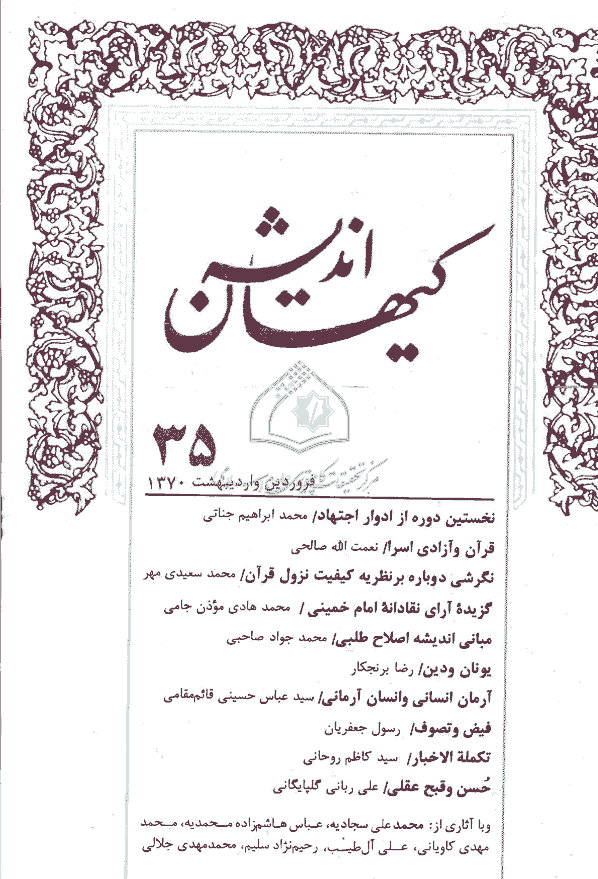 کیهان اندیشه
۳۵
فروردین واردیبهشت ۱۳۷۰
نخستین دوره از ادوار اجتهاد/ محمد ابراهیم جناتی
قرآن وآزادی اسرا/ نعمت الله صالحی
نگرشی دوباره برنظریه کیفیت نزول قرآن/ محمد سعیدی مهر
گزیدهٔ آرای نقادانهٔ امام خمینی/ محمد هادی مؤذن جامی
مبانی اندیشه اصلاح طلبی/ محمد جواد صاحبی
یونان ودین/ رضا برنجکار
آرمان انسانی وانسان آرمانی/ سید عباس حسینی قائم‌مقامی
فیض وتصوف/ رسول جعفریان
تکملة الاخبار/ سید کاظم روحانی
حُسن وقبح عقلی/ علی ربانی گلپایگانی
وبا آثاری از: محمدعلی سجادیه، عباس هاشم‌زاده محمدیه، محمد
مهدی کاویانی، علی آل‌طیب، رحیم‌نژاد سلیم، محمدمهدی جلالی